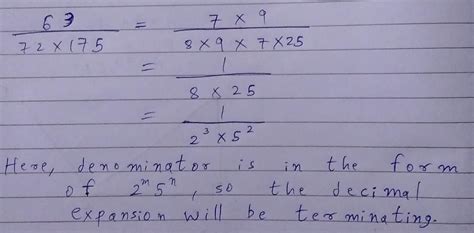 63 = 7 × 9
72 × 175 8 × 9 × 7 × 25
= 1
8 × 25
= 1
2³ × 5²
Here, denominator is in the form
of 2ⁿ5ⁿ, so the decimal
expansion will be terminating.